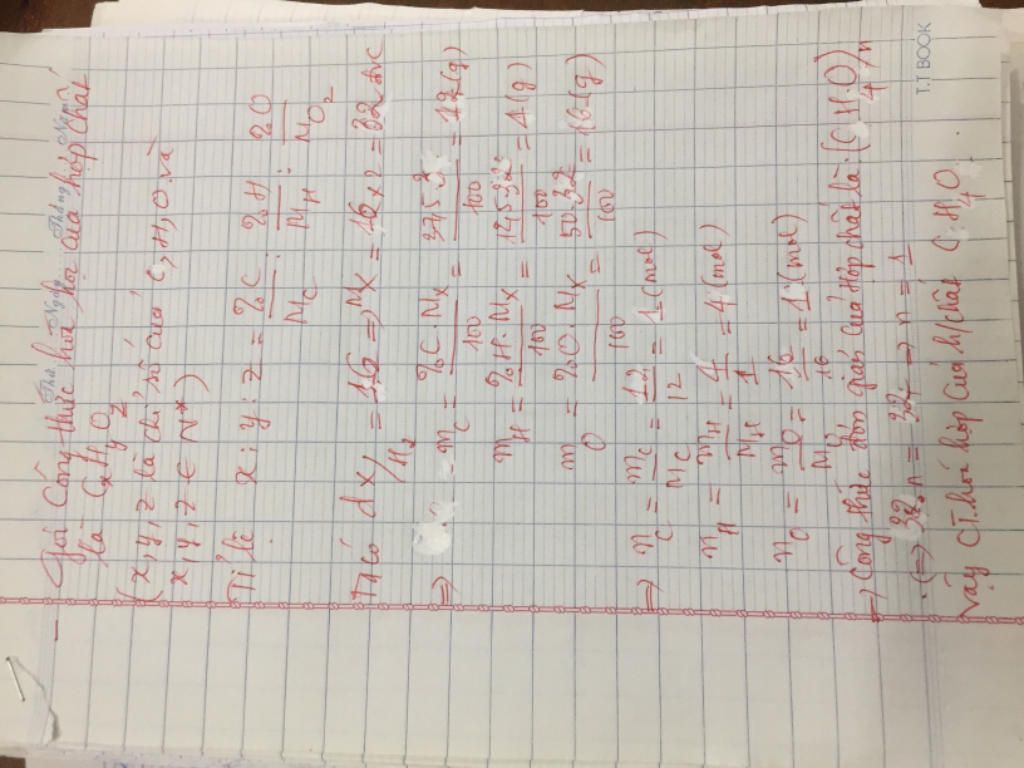 Thứ Ngày Tháng Năm
- Gọi Công thức hoá học của hợp chất
là CxHyOz
(x, y, z là chỉ số của C, H, O và
x, y, z ∈ N*)
Tỉ lệ x : y : z = %C/MC : %H/MH : %O/MO
Ta có dX/H2 = 16 => MX = 16 x 2 = 32 đvC
=> mC = %C . MX / 100 = 37,5 . 32 / 100 = 12 (g)
mH = %H . MX / 100 = 12,5 . 32 / 100 = 4 (g)
mO = %O . MX / 100 = 50 . 32 / 100 = 16 (g)
=> nC = mC/MC = 12/12 = 1 (mol)
nH = mH/MH = 4/1 = 4 (mol)
nO = mO/MO = 16/16 = 1 (mol)
=> Công thức đơn giản của hợp chất là: (CH4O)n
(=> 32.n = 32 => n = 1
Vậy CT hoá hợp của h/chất CH4O
T.T BOOK